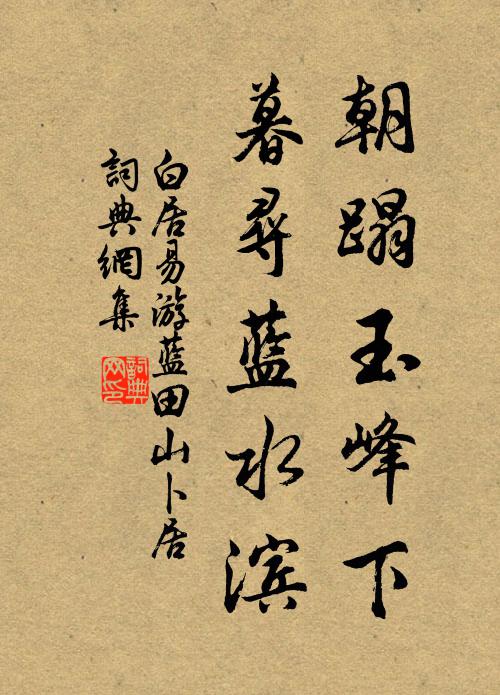 朝蹋玉峰下
暮尋藍水滨
白居易游藍田山卜居
詞典網集
詞典网印